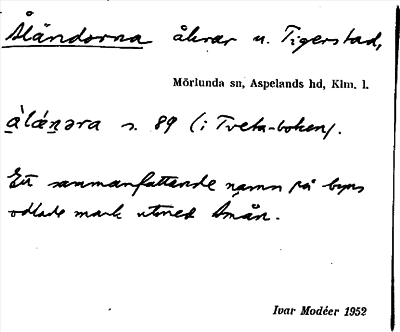 Åländorna åkrar u. Tigerstad,
Mörlunda sn, Aspelands hd, Klm. l.
àláṉəra s. 89 (i Tveta-boken).
Ett sammanfattande namn på byns
odlade mark utmed åmån.
Ivar Modéer 1952